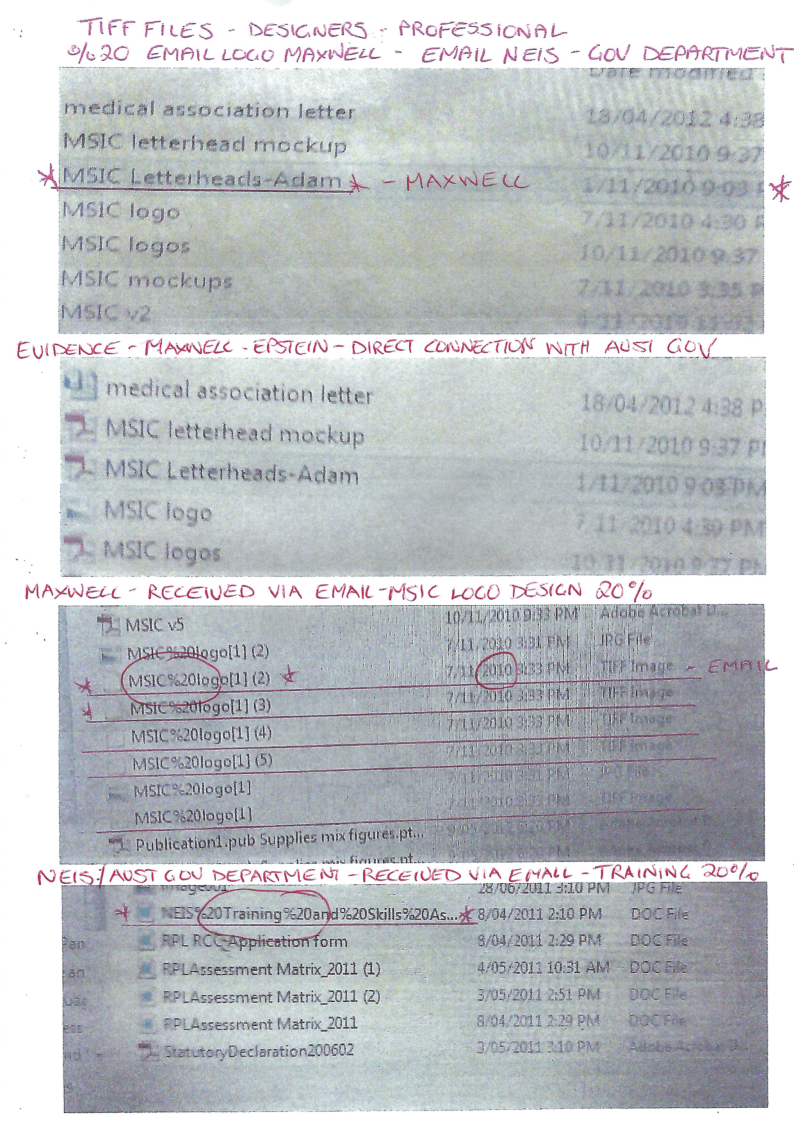 TIFF FILES - DESIGNERS - PROFESSIONAL
%20 EMAIL LOGO MAXWELL - EMAIL NEIS - GOV DEPARTMENT
Date modified
medical association letter 18/04/2012 4:38
MSIC letterhead mockup 10/11/2010 9:37
MSIC Letterheads-Adam - MAXWELL 1/11/2010 9:03 P
MSIC logo 7/11/2010 4:30 P
MSIC logos 10/11/2010 9:37
MSIC mockups 7/11/2010 3:35 P
MSIC v2
EVIDENCE - MAXWELL - EPSTEIN - DIRECT CONNECTION WITH AUST GOV
medical association letter 18/04/2012 4:38 P
MSIC letterhead mockup 10/11/2010 9:37 PM
MSIC Letterheads-Adam 1/11/2010 9:03 PM
MSIC logo 7/11/2010 4:30 PM
MSIC logos 10/11/2010 9:37 PM
MAXWELL - RECEIVED VIA EMAIL - MSIC LOGO DESIGN 20%
MSIC v5 10/11/2010 9:33 PM Adobe Acrobat D...
MSIC%20logo[1] (2) 7/11/2010 3:31 PM JPG File
MSIC%20logo[1] (2) 7/11/2010 3:33 PM TIFF Image - EMAIL
MSIC%20logo[1] (3) 7/11/2010 3:33 PM TIFF Image
MSIC%20logo[1] (4) 7/11/2010 3:33 PM TIFF Image
MSIC%20logo[1] (5) 7/11/2010 3:33 PM TIFF Image
MSIC%20logo[1] 7/11/2010 3:31 PM JPG File
MSIC%20logo[1] 7/11/2010 3:33 PM TIFF Image
Publication1.pub Supplies mix figures.pt...
mix figures.pt...
NEIS/AUST GOV DEPARTMENT - RECEIVED VIA EMAIL - TRAINING 20%
image001 28/06/2011 3:10 PM JPG File
NEIS%20Training%20and%20Skills%20As... 8/04/2011 2:10 PM DOC File
RPL RCC-Application form 8/04/2011 2:29 PM DOC File
RPLAssessment Matrix_2011 (1) 4/05/2011 10:31 AM DOC File
RPLAssessment Matrix_2011 (2) 3/05/2011 2:51 PM DOC File
RPLAssessment Matrix_2011 8/04/2011 2:29 PM DOC File
StatutoryDeclaration200602 3/05/2011 3:10 PM Adobe Acrobat D...